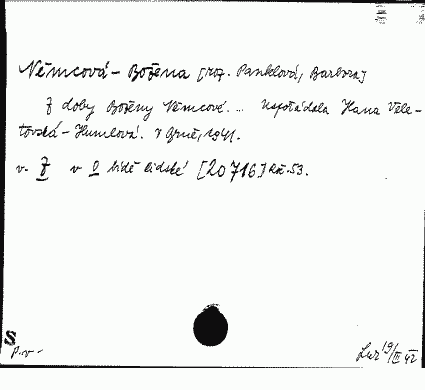 Němcová - Božena [roz. Panklová, Barbora]
Z doby Boženy Němcové. ... Uspořádala Hana Vele-
tovská-Humlová. V Brně, 1941.
v. Z v O bídě lidské [20716]
S
p. v -